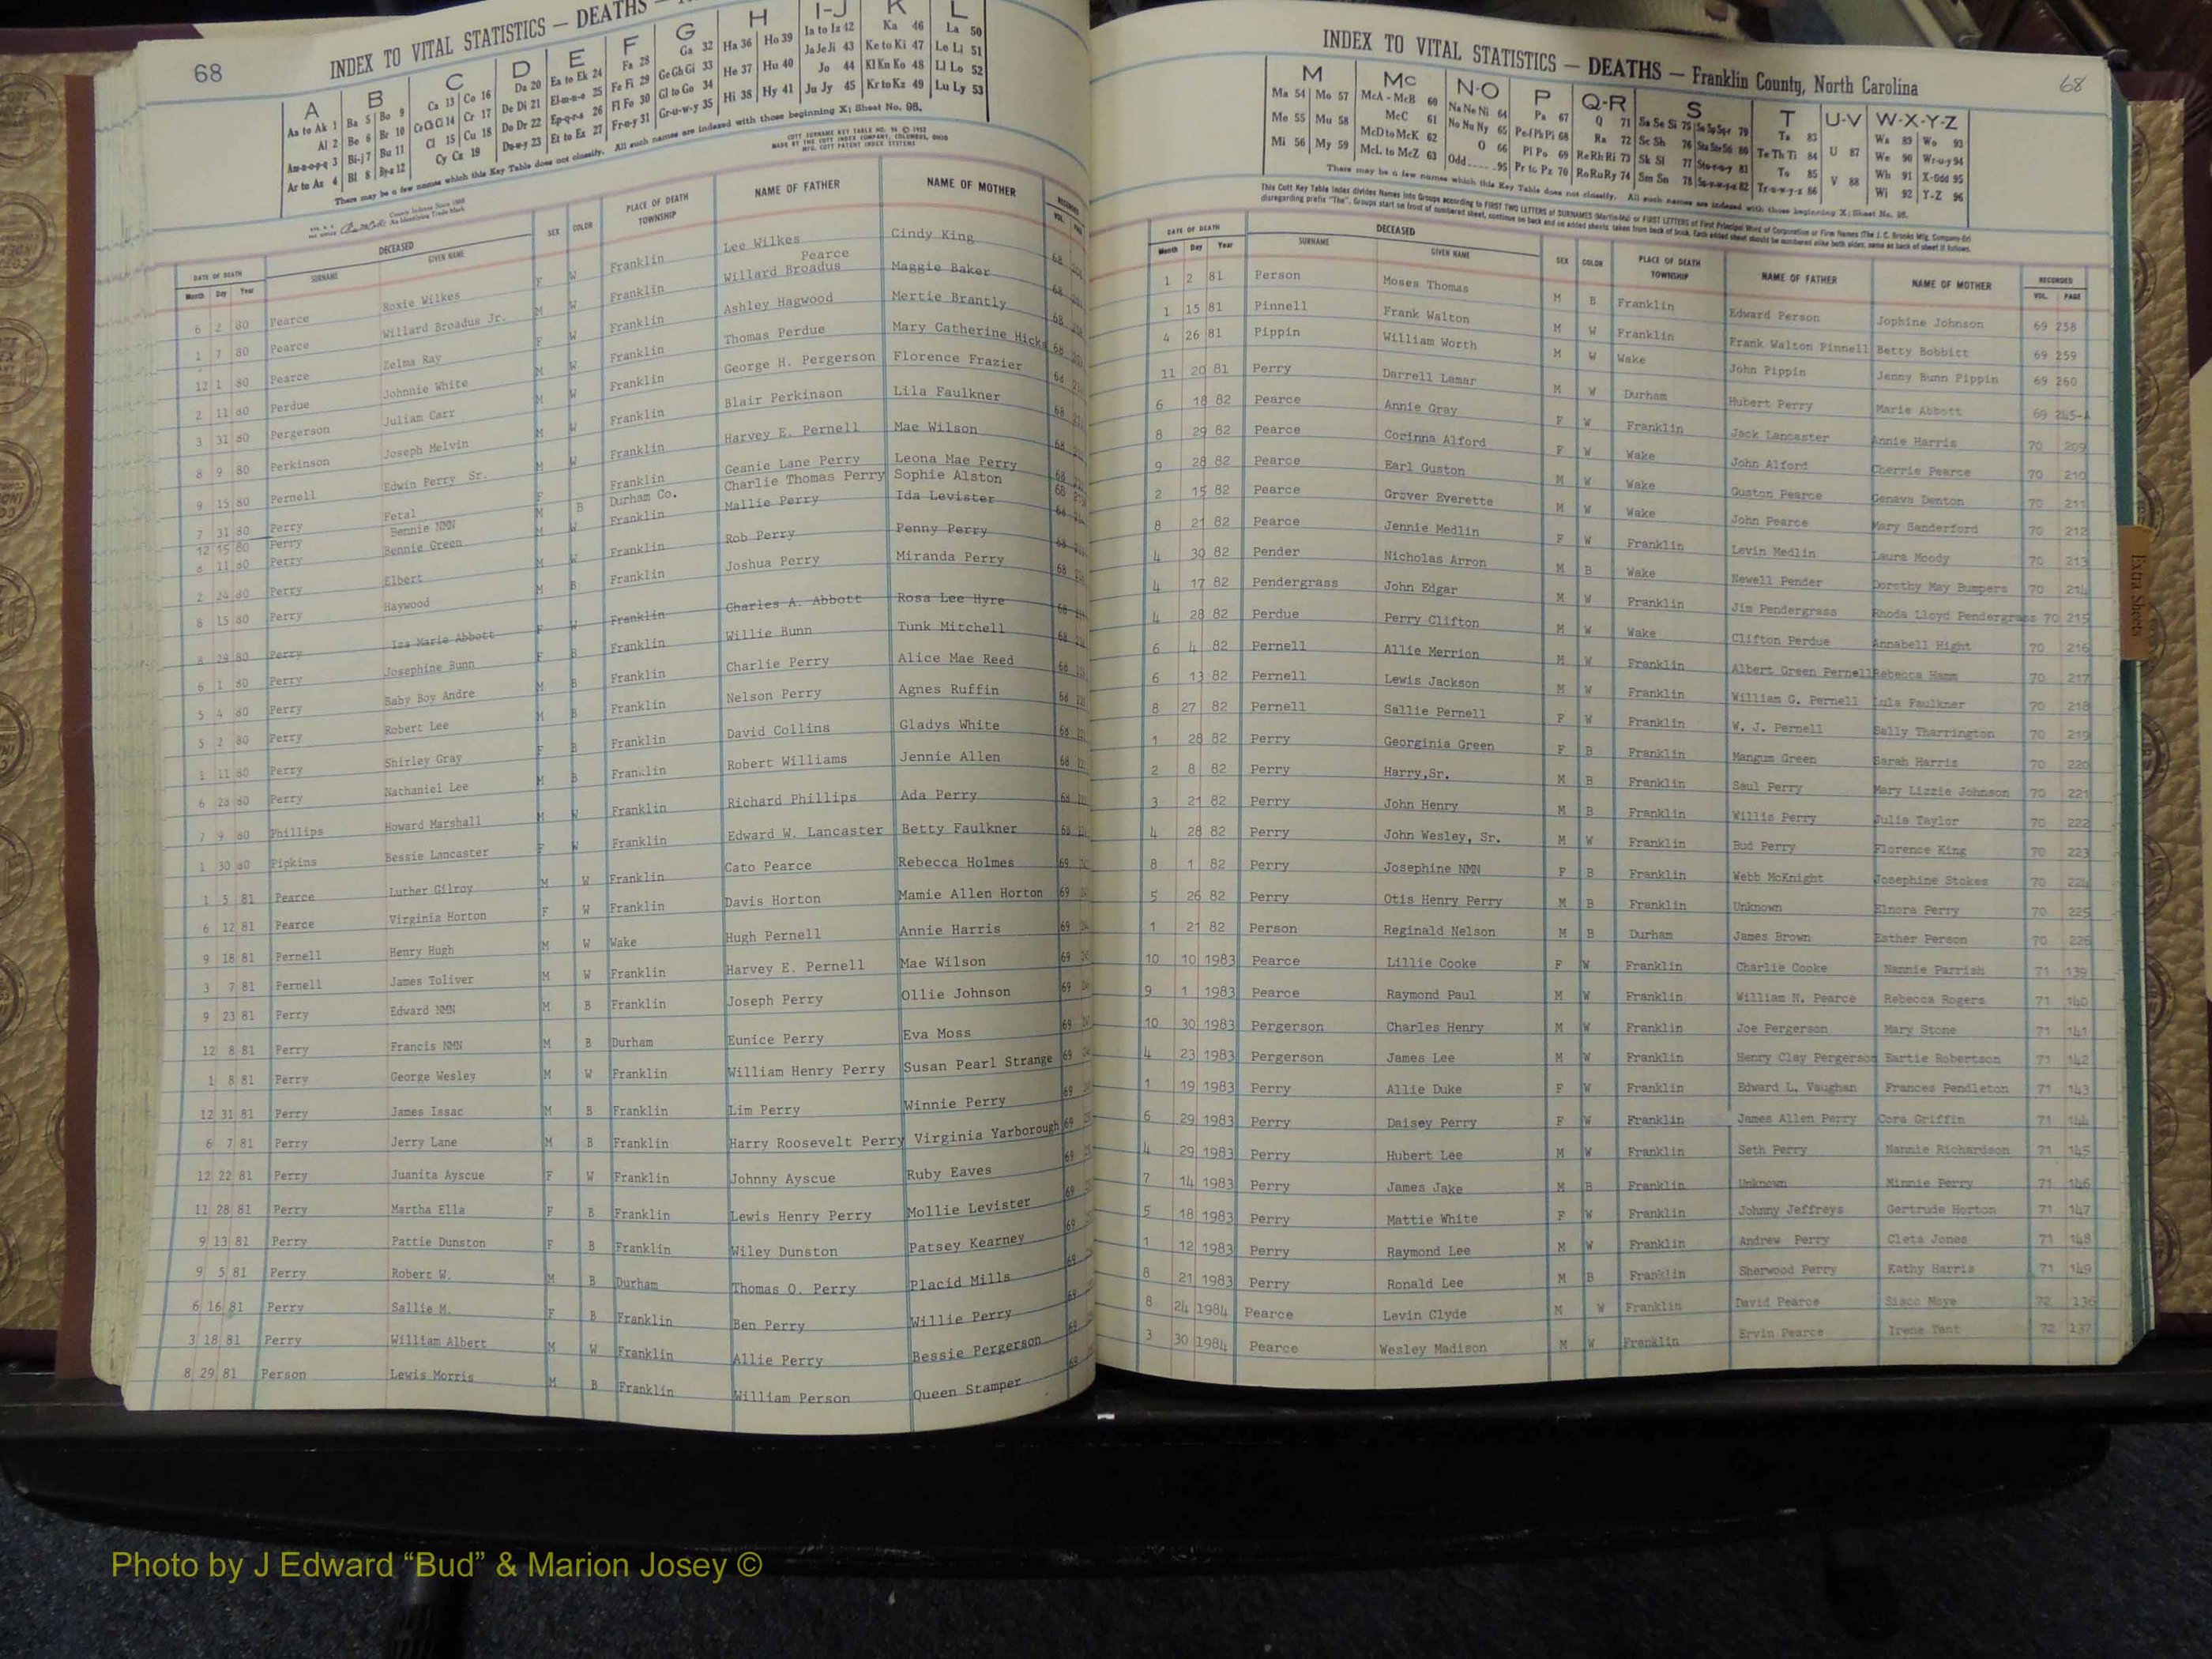 68
INDEX TO VITAL STATISTICS — DEATHS —
A B C D E F G H I-J K L
Aa to Ak 1 Ba 5 Bo 9 Ca 13 Co 16 Da 20 Ea to Ek 24 Fa 28 Ga 32 Ha 36 Ho 39 Ia to Iz 42 Ka 46 La 50
Al 2 Be 6 Br 10 Ce Ch Ci 14 Cr 17 De Di 21 El-m-n-o 25 Fe Fi 29 Ge Gh Gi 33 He 37 Hu 40 Ja Je Ji 43 Ke to Ki 47 Le Li 51
Am-n-o-p-q 3 Bi-j 7 Bu 11 Cl 15 Cu 18 Do Dr 22 Ep-q-r-s 26 Fl Fo 30 Gl to Go 34 Hi 38 Hy 41 Jo 44 Kl Kn Ko 48 Ll Lo 52
Ar to Az 4 Bl 8 By-z 12 Cy Cz 19 Du-w-y 23 Et to Ez 27 Fr-u-y 31 Gr-u-w-y 35 Ju Jy 45 Kr to Kz 49 Lu Ly 53
There may be a few names which this Key Table does not classify. All such names are indexed with those beginning X; Sheet No. 95.
COTT SURNAME KEY TABLE NO. 96 © 1952
MADE BY THE COTT INDEX COMPANY, COLUMBUS, OHIO
MFG. COTT PATENT INDEX SYSTEMS
DATE OF DEATH DECEASED SEX COLOR PLACE OF DEATH TOWNSHIP NAME OF FATHER NAME OF MOTHER RECORDED
Month Day Year SURNAME GIVEN NAME VOL. PAGE
6 2 80 Pearce Roxie Wilkes F W Franklin Lee Wilkes Cindy King 68
1 7 80 Pearce Willard Broadus Jr. M W Franklin Willard Broadus Pearce Maggie Baker 68
12 1 80 Pearce Zelma Ray F W Franklin Ashley Hagwood Mertie Brantly 68
2 11 80 Perdue Johnnie White M W Franklin Thomas Perdue Mary Catherine Hicks 68
3 31 80 Pergerson Juliam Carr M W Franklin George H. Pergerson Florence Frazier 68
8 9 80 Perkinson Joseph Melvin M W Franklin Blair Perkinson Lila Faulkner 68
9 15 80 Pernell Edwin Perry Sr. M W Franklin Harvey E. Pernell Mae Wilson 68
7 31 80 Perry Fetal F Franklin Geanie Lane Perry Leona Mae Perry 68
12 15 80 Perry Bennie NMN M B Durham Co. Charlie Thomas Perry Sophie Alston 68
8 11 80 Perry Bennie Green M W Franklin Mallie Perry Ida Levister 68
2 24 80 Perry Elbert M W Franklin Rob Perry Penny Perry 68
8 15 80 Perry Haywood M B Franklin Joshua Perry Miranda Perry 68
8 29 80 Perry Iza Marie Abbott F W Franklin Charles A. Abbott Rosa Lee Hyre 68
6 1 80 Perry Josephine Bunn F B Franklin Willie Bunn Tunk Mitchell 68
5 4 80 Perry Baby Boy Andre M B Franklin Charlie Perry Alice Mae Reed 68
5 2 80 Perry Robert Lee M B Franklin Nelson Perry Agnes Ruffin 68
1 11 80 Perry Shirley Gray F B Franklin David Collins Gladys White 68
6 28 80 Perry Nathaniel Lee M B Franklin Robert Williams Jennie Allen 68
7 9 80 Phillips Howard Marshall M W Franklin Richard Phillips Ada Perry 68
1 30 80 Pipkins Bessie Lancaster F W Franklin Edward W. Lancaster Betty Faulkner 68
1 5 81 Pearce Luther Gilroy M W Franklin Cato Pearce Rebecca Holmes 69
6 12 81 Pearce Virginia Horton F W Franklin Davis Horton Mamie Allen Horton 69
9 18 81 Pernell Henry Hugh M W Wake Hugh Pernell Annie Harris 69
3 7 81 Pernell James Toliver M W Franklin Harvey E. Pernell Mae Wilson 69
9 23 81 Perry Edward NMN M B Franklin Joseph Perry Ollie Johnson 69
12 8 81 Perry Francis NMN M B Durham Eunice Perry Eva Moss 69
1 8 81 Perry George Wesley M W Franklin William Henry Perry Susan Pearl Strange 69
12 31 81 Perry James Issac M B Franklin Lim Perry Winnie Perry 69
6 7 81 Perry Jerry Lane M B Franklin Harry Roosevelt Perry Virginia Yarborough 69
12 22 81 Perry Juanita Ayscue F W Franklin Johnny Ayscue Ruby Eaves 69
11 28 81 Perry Martha Ella F B Franklin Lewis Henry Perry Mollie Levister 69
9 13 81 Perry Pattie Dunston F B Franklin Wiley Dunston Patsey Kearney 69
9 5 81 Perry Robert W. M B Durham Thomas O. Perry Placid Mills 69
6 16 81 Perry Sallie M. F B Franklin Ben Perry Willie Perry 69
3 18 81 Perry William Albert M W Franklin Allie Perry Bessie Pergerson 69
8 29 81 Person Lewis Morris M B Franklin William Person Queen Stamper 69
INDEX TO VITAL STATISTICS — DEATHS — Franklin County, North Carolina
68
M Mc N-O P Q-R S T U-V W-X-Y-Z
Ma 54 Mo 57 McA - McB 60 Na Ne Ni 64 Pa 67 Q 71 Sa Se Si 75 So Sp Sq-r 79 Ta 83 U 87 Wa 89 Wo 93
Me 55 Mu 58 McC 61 No Nu Ny 65 Pe-f Ph Pi 68 Ra 72 Sc Sh 76 Sta Ste Sti 80 Te Th Ti 84 V 88 We 90 Wr-u-y 94
Mi 56 My 59 McD to McK 62 O 66 Pl Po 69 Re Rh Ri 73 Sk Sl 77 Sto-r-u-y 81 To 85 Wh 91 X-Odd 95
McL to McZ 63 Odd 95 Pr to Pz 70 Ro Ru Ry 74 Sm Sn 78 Su-v-w-y-z 82 Tr-u-w-y-z 86 Wi 92 Y-Z 96
There may be a few names which this Key Table does not classify. All such names are indexed with those beginning X; Sheet No. 95.
This Cott Key Table Index divides Names into Groups according to FIRST TWO LETTERS of SURNAMES (Martin-Ma) or FIRST LETTERS of First Principal Word of Corporation or Firm Names (The J. C. Brooks Mfg. Company-Br)
disregarding prefix "The". Groups start on front of numbered sheet, continue on back and on added sheets taken from back of book. Each added sheet should be numbered alike both sides, same as back of sheet it follows.
DATE OF DEATH DECEASED SEX COLOR PLACE OF DEATH TOWNSHIP NAME OF FATHER NAME OF MOTHER RECORDED
Month Day Year SURNAME GIVEN NAME VOL. PAGE
1 2 81 Person Moses Thomas M B Franklin Edward Person Jophine Johnson 69 258
1 15 81 Pinnell Frank Walton M W Franklin Frank Walton Pinnell Betty Bobbitt 69 259
4 26 81 Pippin William Worth M W Wake John Pippin Jenny Bunn Pippin 69 260
11 20 81 Perry Darrell Lamar M W Durham Hubert Perry Marie Abbott 69 245-A
6 18 82 Pearce Annie Gray F W Franklin Jack Lancaster Annie Harris 70 209
8 29 82 Pearce Corinna Alford F W Wake John Alford Cherrie Pearce 70 210
9 28 82 Pearce Earl Guston M W Wake Guston Pearce Geneva Denton 70 211
2 15 82 Pearce Grover Everette M W Wake John Pearce Mary Sanderford 70 212
8 21 82 Pearce Jennie Medlin F W Franklin Levin Medlin Laura Moody 70 213
4 30 82 Pender Nicholas Arron M B Wake Newell Pender Dorothy May Bumpers 70 214
4 17 82 Pendergrass John Edgar M W Franklin Jim Pendergrass Rhoda Lloyd Pendergrass 70 215
4 28 82 Perdue Perry Clifton M W Wake Clifton Perdue Annabell Hight 70 216
6 4 82 Pernell Allie Merrion M W Franklin Albert Green Pernell Rebecca Hamm 70 217
6 13 82 Pernell Lewis Jackson M W Franklin William G. Pernell Lula Faulkner 70 218
8 27 82 Pernell Sallie Pernell F W Franklin W. J. Pernell Sally Tharrington 70 219
1 28 82 Perry Georginia Green F B Franklin Mangum Green Sarah Harris 70 220
2 8 82 Perry Harry,Sr. M B Franklin Saul Perry Mary Lizzie Johnson 70 221
3 21 82 Perry John Henry M B Franklin Willis Perry Julia Taylor 70 222
4 28 82 Perry John Wesley, Sr. M W Franklin Bud Perry Florence King 70 223
8 1 82 Perry Josephine NMN F B Franklin Webb McKnight Josephine Stokes 70 224
5 26 82 Perry Otis Henry Perry M B Franklin Unknown Elnora Perry 70 225
1 21 82 Person Reginald Nelson M B Durham James Brown Esther Person 70 226
10 10 1983 Pearce Lillie Cooke F W Franklin Charlie Cooke Nannie Parrish 71 139
9 1 1983 Pearce Raymond Paul M W Franklin William N. Pearce Rebecca Rogers 71 140
10 30 1983 Pergerson Charles Henry M W Franklin Joe Pergerson Mary Stone 71 141
4 23 1983 Pergerson James Lee M W Franklin Henry Clay Pergerson Bartie Robertson 71 142
1 19 1983 Perry Allie Duke F W Franklin Edward L. Vaughan Frances Pendleton 71 143
6 29 1983 Perry Daisey Perry F W Franklin James Allen Perry Cora Griffin 71 144
4 29 1983 Perry Hubert Lee M W Franklin Seth Perry Nannie Richardson 71 145
7 14 1983 Perry James Jake M B Franklin Unknown Minnie Perry 71 146
5 18 1983 Perry Mattie White F W Franklin Johnny Jeffreys Gertrude Horton 71 147
1 12 1983 Perry Raymond Lee M W Franklin Andrew Perry Cleta Jones 71 148
8 21 1983 Perry Ronald Lee M B Franklin Sherwood Perry Kathy Harris 71 149
8 24 1984 Pearce Levin Clyde M W Franklin David Pearce Sisco Moye 72 136
3 30 1984 Pearce Wesley Madison M W Franklin Ervin Pearce Irene Tant 72 137
Extra Sheets
Photo by J Edward “Bud” & Marion Josey ©